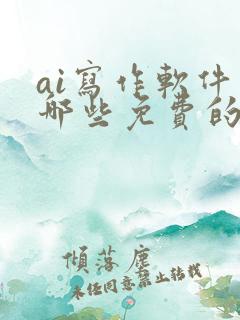 ai寫作軟件
哪些免費的
傾落塵
未經同意禁止轉載